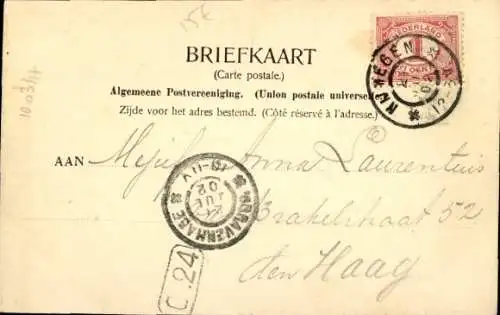 15c
NEDERLAND
1
BRIEFKAART
(Carte postale.)
Algemeene Postvereeniging. (Union postale universelle)
Zijde voor het adres bestemd. (Côté réservé à l'adresse.)
NIJMEGEN
AAN Mejuf. Anna Laurentius
Brakelstraat 52
den Haag
'SGRAVENHAGE
JUL
02
C. 24